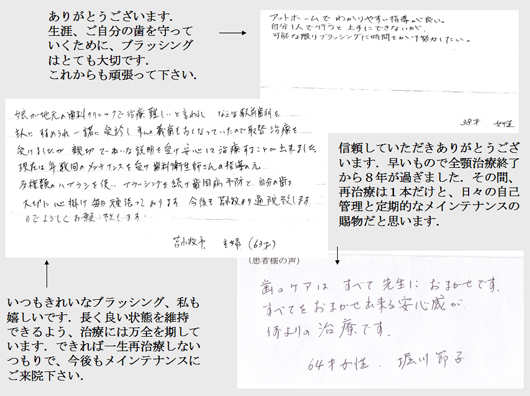 ありがとうございます.
生涯、ご自分の歯を守って
いくために、ブラッシング
はとても大切です.
これからも頑張って下さい.
アットホームで わかりやすい指導が良い。
自分1人で行うと 上手にできないが、
可能な限りブラッシングに時間をかけ努力したい。
38才 女性
娘が地元の歯科クリニックで治療難しいと言われ
私に 一緒に受診し 私の義歯も なっていたので 治療を
受けましたが 親切で ていねいな説明を受け安心して治療することが出来ました
現在は年数回のメンテナンスを受け歯科衛生士さんの指導の元
多種類のハブラシを使い ブラッシングを続け歯周病予防と、自分の歯を
大切に心掛け毎日頑張っております 今後も苫小牧より通院致します
のでよろしくお願い致します
苫小牧市 主婦 (63才)
信頼していただきありがとうご
ざいます. 早いもので全顎治療終了
から8年が過ぎました. その間、
再治療は1本だけと、日々の自己
管理と定期的なメインテナンスの
賜物だと思います.
(患者様の声)
歯のケアは すべて 先生に おまかせです。
すべてを おまかせ出来る安心感が、
何よりの 治療です。
64才女性. 堀川節子
いつもきれいなブラッシング、私も
嬉しいです. 長く良い状態を維持
できるよう、治療には万全を期してい
ます. できれば一生再治療しない
つもりで、今後もメインテナンスに
ご来院下さい.